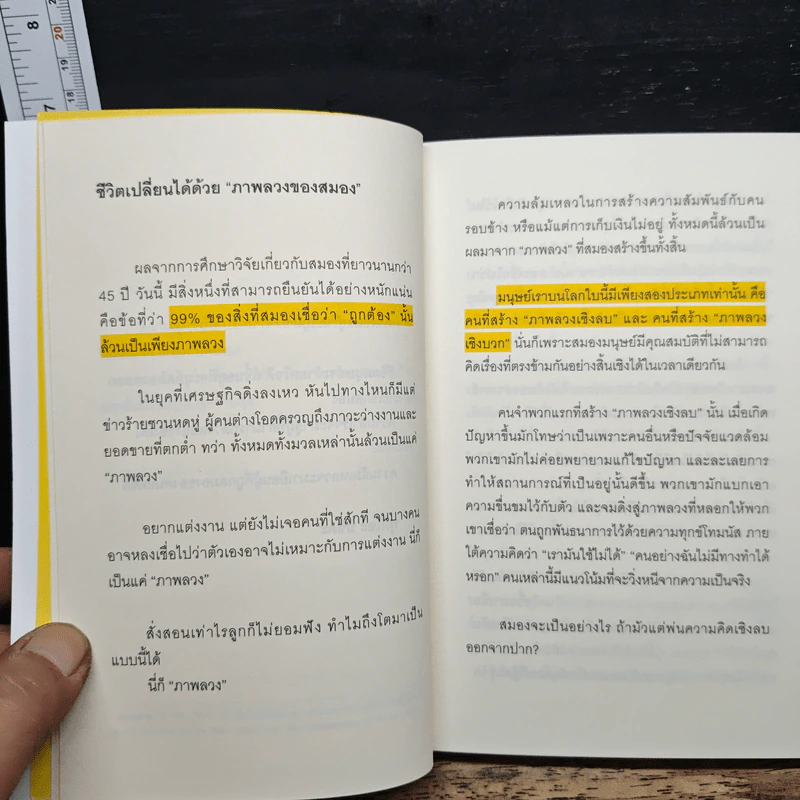 8
20
19
18
7
ชีวิตเปลี่ยนได้ด้วย “ภาพลวงของสมอง”
ผลจากการศึกษาวิจัยเกี่ยวกับสมองที่ยาวนานกว่า
45 ปี วันนี้ มีสิ่งหนึ่งที่สามารถยืนยันได้อย่างหนักแน่น
คือข้อที่ว่า 99% ของสิ่งที่สมองเชื่อว่า “ถูกต้อง” นั้น
ล้วนเป็นเพียงภาพลวง
ในยุคที่เศรษฐกิจดิ่งลงเหว หันไปทางไหนก็มีแต่
ข่าวร้ายชวนหดหู่ ผู้คนต่างโอดครวญถึงภาวะว่างงานและ
ยอดขายที่ตกต่ำ ทว่า ทั้งหมดทั้งมวลเหล่านั้นล้วนเป็นแค่
“ภาพลวง”
อยากแต่งงาน แต่ยังไม่เจอคนที่ใช่สักที จนบางคน
อาจหลงเชื่อไปว่าตัวเองอาจไม่เหมาะกับการแต่งงาน นี่ก็
เป็นแค่ “ภาพลวง”
สั่งสอนเท่าไรลูกก็ไม่ยอมฟัง ทำไมถึงโตมาเป็น
แบบนี้ได้
นี่ก็ “ภาพลวง”
ความล้มเหลวในการสร้างความสัมพันธ์กับคน
รอบข้าง หรือแม้แต่การเก็บเงินไม่อยู่ ทั้งหมดนี้ล้วนเป็น
ผลมาจาก “ภาพลวง” ที่สมองสร้างขึ้นทั้งสิ้น
มนุษย์เราบนโลกใบนี้มีเพียงสองประเภทเท่านั้น คือ
คนที่สร้าง “ภาพลวงเชิงลบ” และ คนที่สร้าง “ภาพลวง
เชิงบวก” นั่นก็เพราะสมองมนุษย์มีคุณสมบัติที่ไม่สามารถ
คิดเรื่องที่ตรงข้ามกันอย่างสิ้นเชิงได้ในเวลาเดียวกัน
คนจำพวกแรกที่สร้าง “ภาพลวงเชิงลบ” นั้น เมื่อเกิด
ปัญหาขึ้นมักโทษว่าเป็นเพราะคนอื่นหรือปัจจัยแวดล้อม
พวกเขามักไม่ค่อยพยายามแก้ไขปัญหา และละเลยการ
ทำให้สถานการณ์ที่เป็นอยู่นั้นดีขึ้น พวกเขามักแบกเอา
ความขื่นขมไว้กับตัว และจมดิ่งสู่ภาพลวงที่หลอกให้พวก
เขาเชื่อว่า ตนถูกพันธนาการไว้ด้วยความทุกข์โทมนัส ภาย
ใต้ความคิดว่า “เรามันใช้ไม่ได้” “คนอย่างฉันไม่มีทางทำได้
หรอก” คนเหล่านี้มีแนวโน้มที่จะวิ่งหนีจากความเป็นจริง
สมองจะเป็นอย่างไร ถ้ามัวแต่พ่นความคิดเชิงลบ
ออกจากปาก?